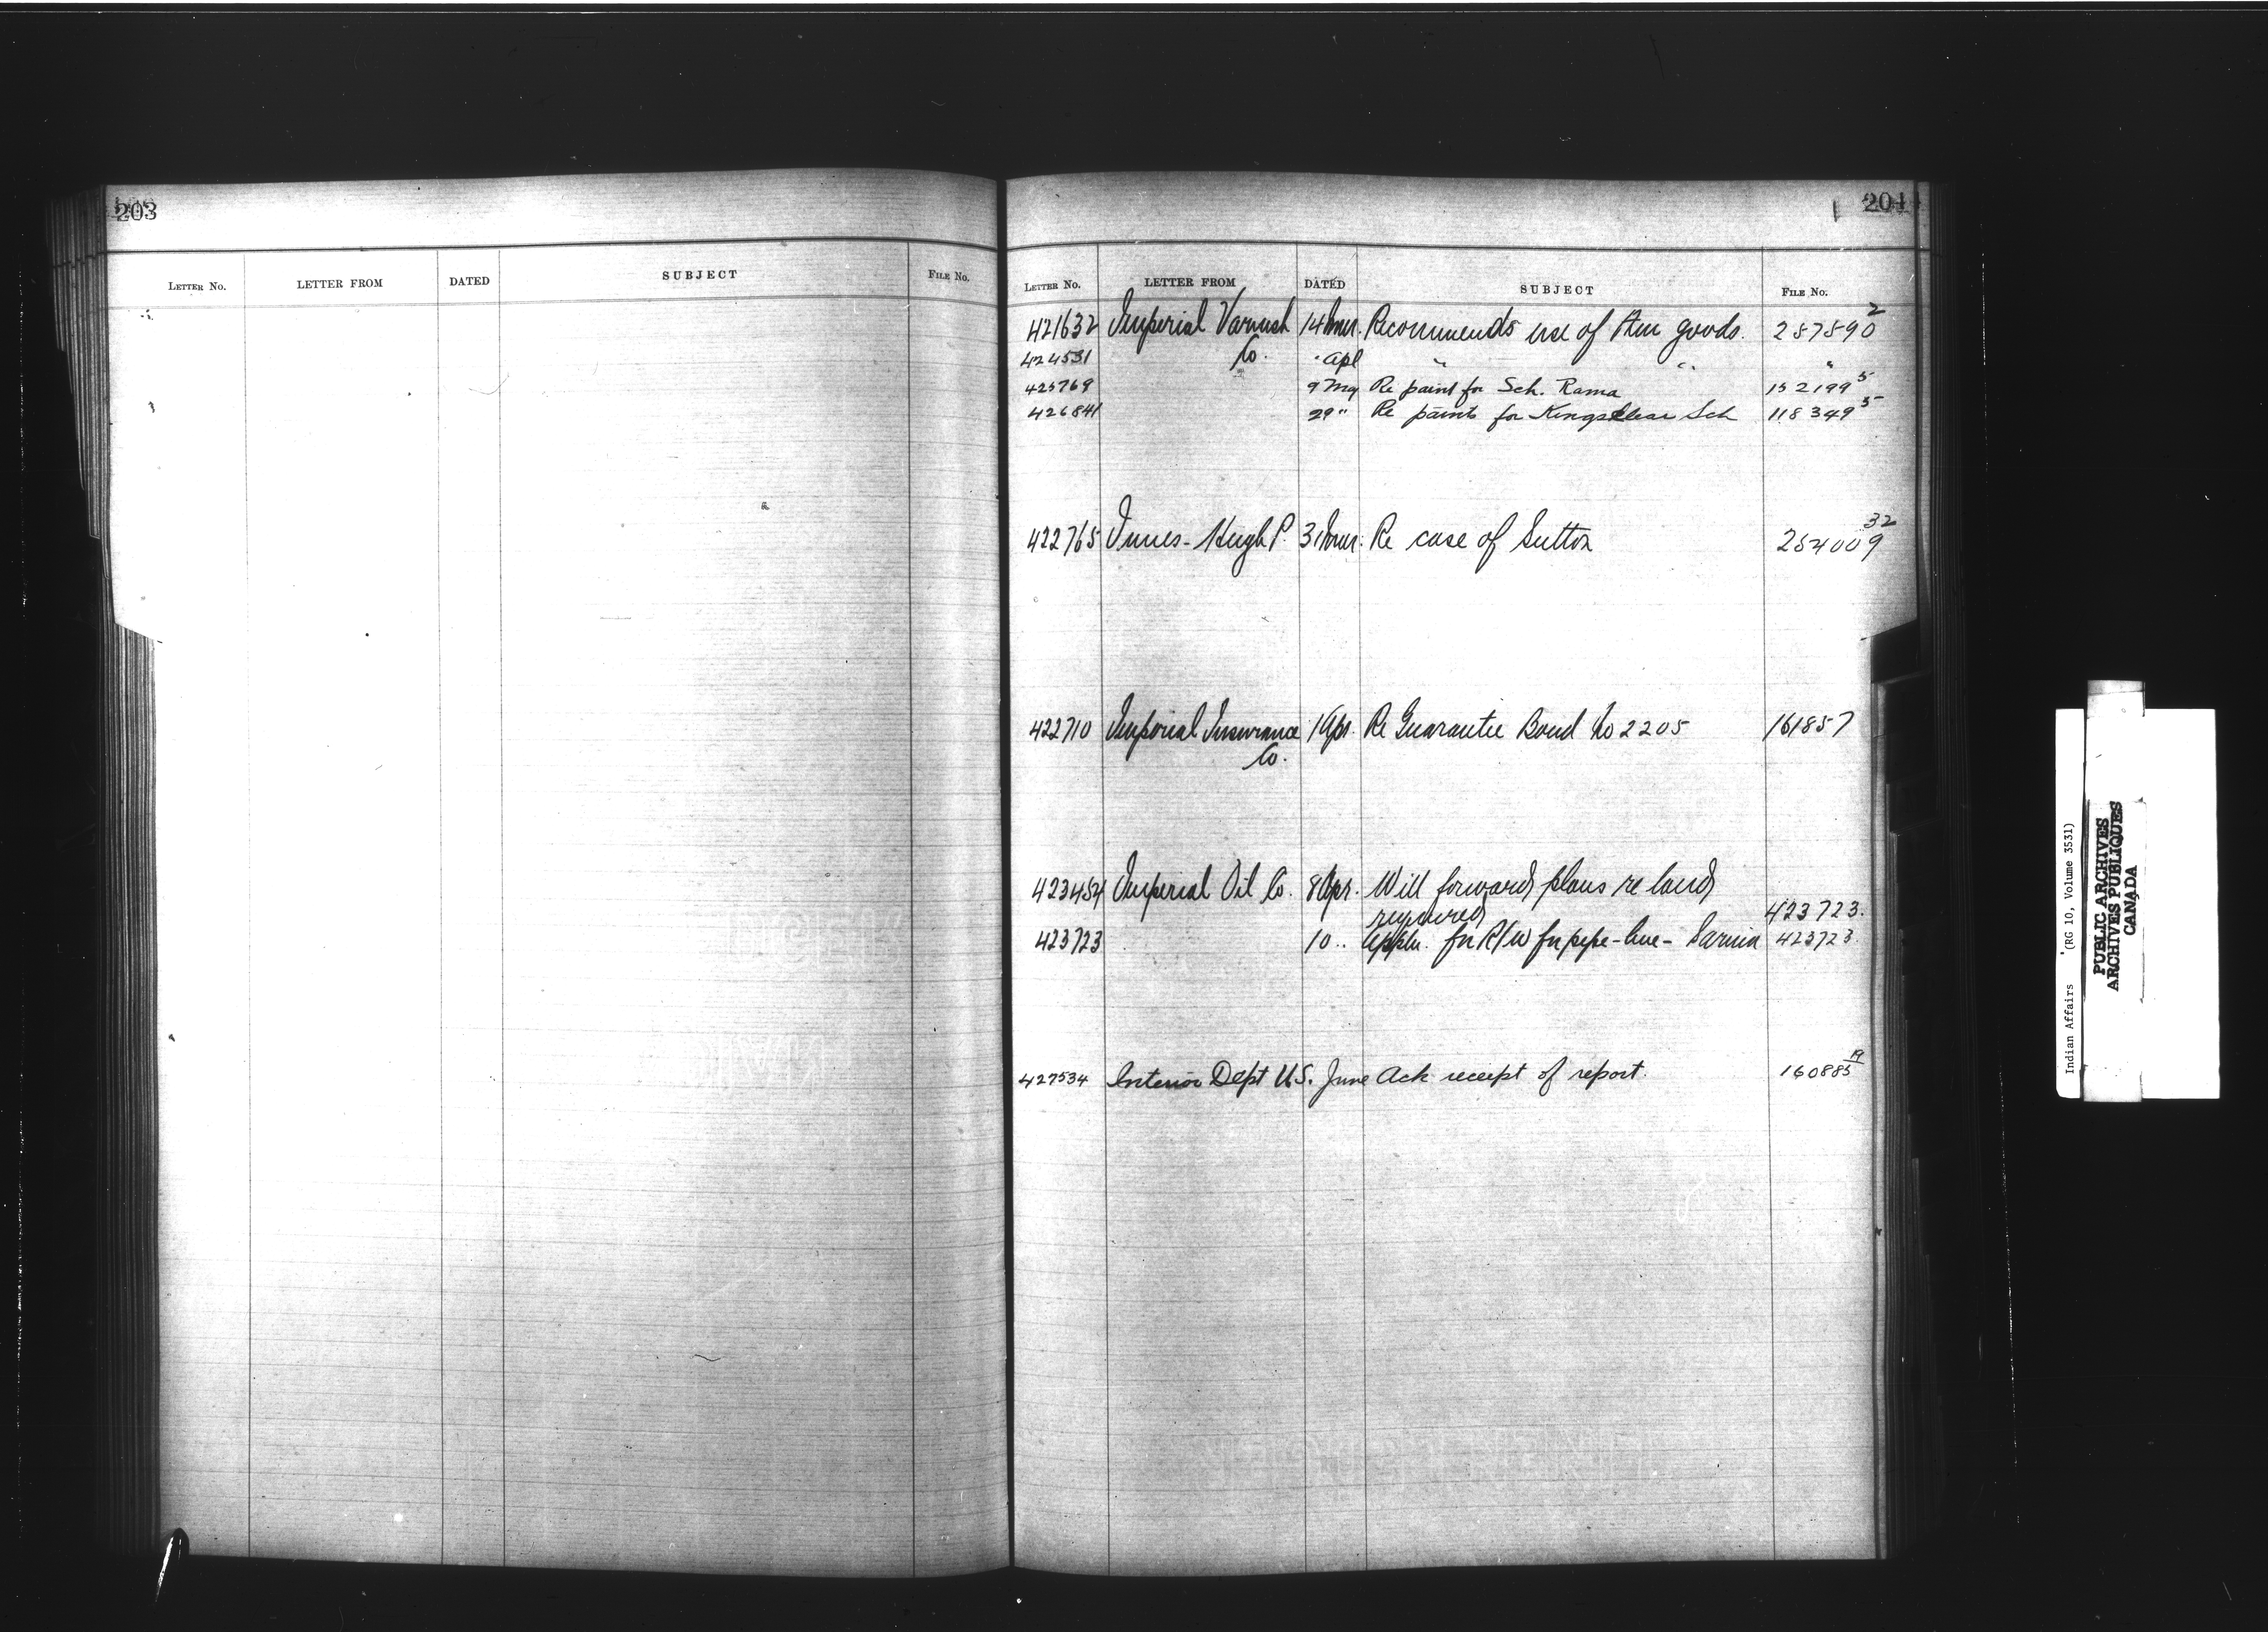 203
LETTER NO. LETTER FROM DATED SUBJECT FILE NO.
204
LETTER NO. LETTER FROM DATED SUBJECT FILE NO.
421632 Imperial Varnish 14 Mar. Recommends use of their goods. 287890 2
424531 Co. " Apl " " "
425769 9 May Re paint for Sch. Rama 152199 5
426841 29 " Re paint for Kingsclear Sch 118349 5
422765 Innes - Hugh P. 31 Mar. Re case of Sutton 254009 32
422710 Imperial Insurance 1 Apr. Re Guarantee Bond No 2205 161857
Co.
423454 Imperial Oil Co. 8 Apr. Will forward plans re land
required 423723.
423723 10 .. Appln. for R/W for pipe-line - Sarnia 423723.
427534 Interior Dept U.S. June Ack receipt of report. 160885 19
Indian Affairs (RG 10, Volume 3531)
PUBLIC ARCHIVES
ARCHIVES PUBLIQUES
CANADA